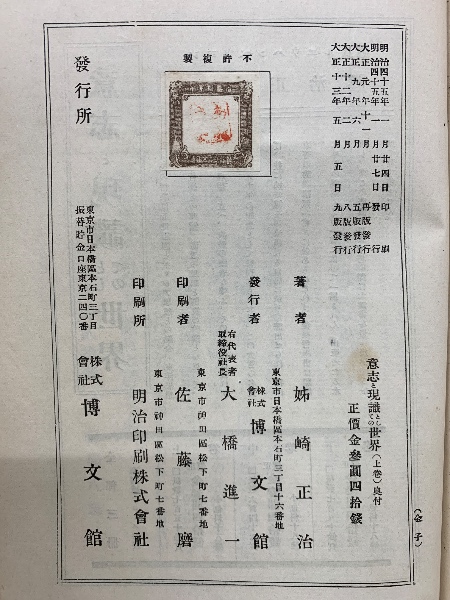 不許複製
明治四十五年二月廿四日印刷
明治四十五年二月廿七日發行
大正元年十一月再版發行
大正九年六月五版發行
大正十二年二月八版發行
大正十三年五月五日九版發行
意志と現識としての世界（上卷）奥付
正價金參圓四拾錢
著者 姊崎正治
東京市日本橋區本石町三丁目十六番地
發行者 株式會社 博文館
右代表者取締役社長 大橋進一
東京市神田區松下町七番地
印刷者 佐藤磨
東京市神田區松下町七番地
印刷所 明治印刷株式會社
發行所
東京市日本橋區本石町三丁目
振替貯金口座東京二四〇番
株式會社 博文館
（金子）